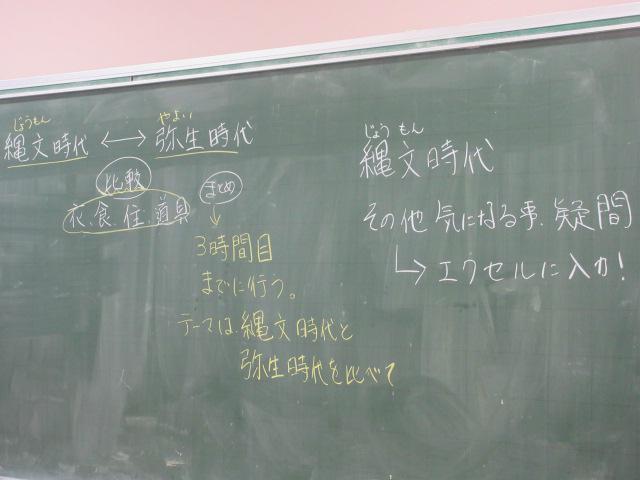 じょうもん やよい
縄文時代 ↔ 弥生時代
比較 まとめ
衣、食、住、道具
3時間目
までに行う。
テーマは、縄文時代と
弥生時代を比べて
じょうもん
縄文時代
その他 気になる事、疑問
↳ エクセルに入力!